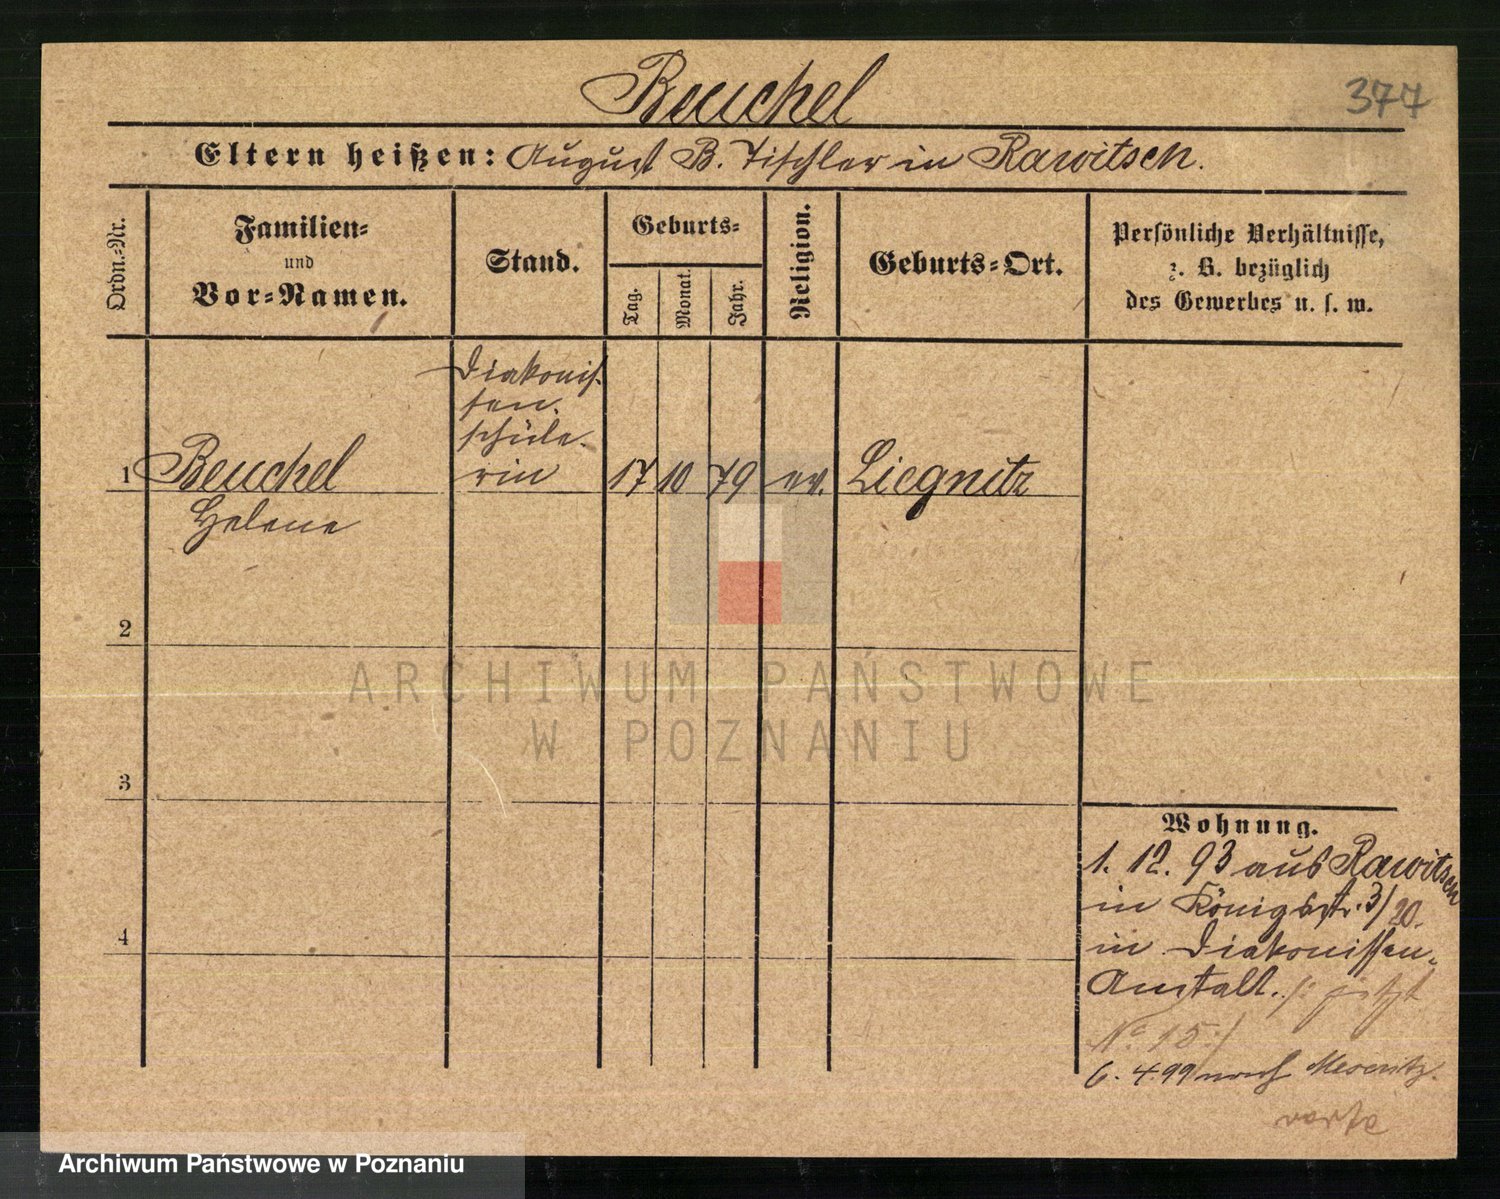 Beuchel
377
Eltern heißen: August B. Tischler in Rawitsch.
Ordn.-Nr.
Familien-
und
Vor-Namen.
Stand.
Geburts-
Tag.
Monat.
Jahr.
Religion.
Geburts-Ort.
Persönliche Verhältnisse,
z. B. bezüglich
des Gewerbes u. s. w.
Diakonis-
sen-
schüle-
rin
1 Beuchel 17 10 79 ev. Liegnitz
Helene
2
3
4
Wohnung.
1. 12. 93 aus Rawitsch
in Königstr. 3/20.
in Diakonissen-
Anstalt. /: jetzt
No 15 :/
6. 4. 99 nach Meseritz.
ARCHIWUM PAŃSTWOWE
W POZNANIU
Archiwum Państwowe w Poznaniu